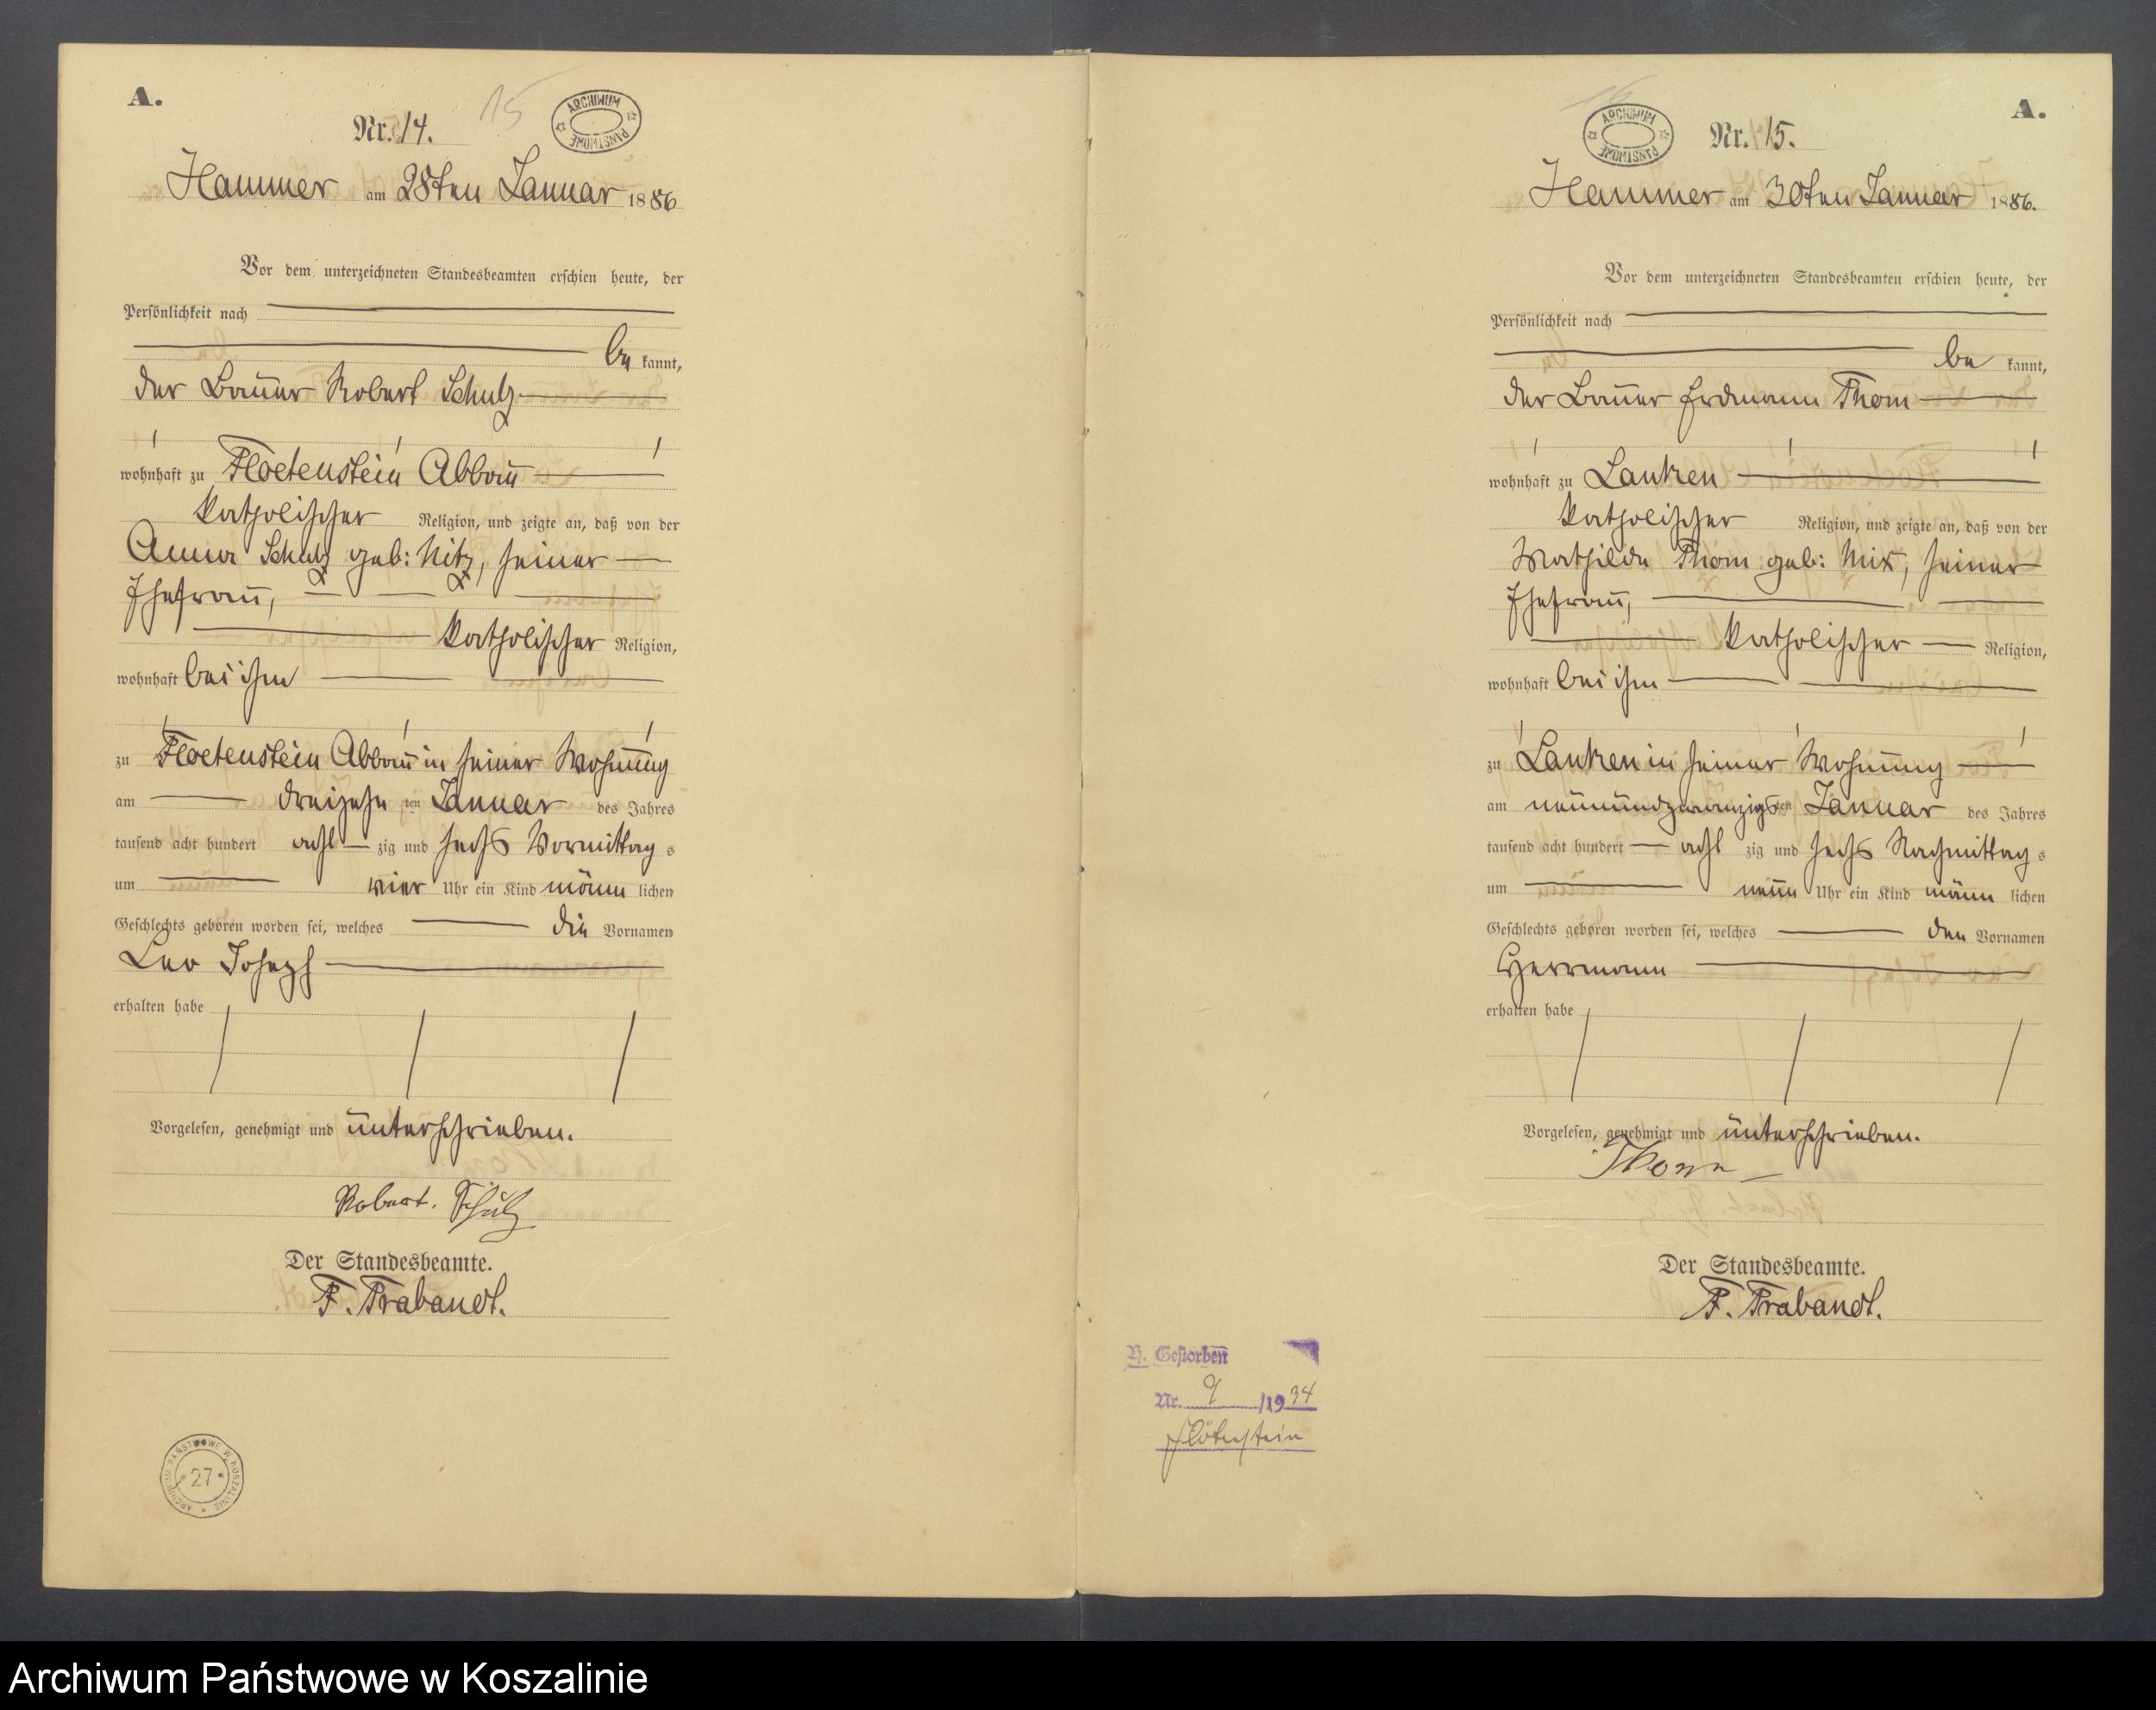 A.
Nr. 14.
15
ARCHIWUM PAŃSTWOWE
Hammer am 28ten Januar 1886
Vor dem unterzeichneten Standesbeamten erschien heute, der
Persönlichkeit nach
be kannt,
der Bauer Robert Schulz
wohnhaft zu Floetenstein Abbau
katholischer Religion, und zeigte an, daß von der
Anna Schulz geb: Nitz, seiner
Ehefrau,
katholischer Religion,
wohnhaft bei ihm
zu Floetenstein Abbau in seiner Wohnung
am dreizehn ten Januar des Jahres
tausend acht hundert acht zig und sechs Vormittag s
um vier Uhr ein Kind männ lichen
Geschlechts geboren worden sei, welches die Vornamen
Leo Joseph
erhalten habe
Vorgelesen, genehmigt und unterschrieben.
Robert. Schulz
Der Standesbeamte.
F. Trabandt.
ARCHIWUM PAŃSTWOWE W KOSZALINIE
27
A.
ARCHIWUM PAŃSTWOWE
Nr. 15.
Hammer am 30ten Januar 1886.
Vor dem unterzeichneten Standesbeamten erschien heute, der
Persönlichkeit nach
be kannt,
der Bauer Erdmann Thom
wohnhaft zu Lanken
katholischer Religion, und zeigte an, daß von der
Mathilde Thom geb: Mix, seiner
Ehefrau,
katholischer Religion,
wohnhaft bei ihm
zu Lanken in seiner Wohnung
am neunundzwanzigs ten Januar des Jahres
tausend acht hundert acht zig und sechs Nachmittag s
um neun Uhr ein Kind männ lichen
Geschlechts geboren worden sei, welches den Vornamen
Herrmann
erhalten habe
Vorgelesen, genehmigt und unterschrieben.
Thom
Der Standesbeamte.
F. Trabandt.
H. Gestorben
Nr. 9 /1934
Flötenstein
Archiwum Państwowe w Koszalinie